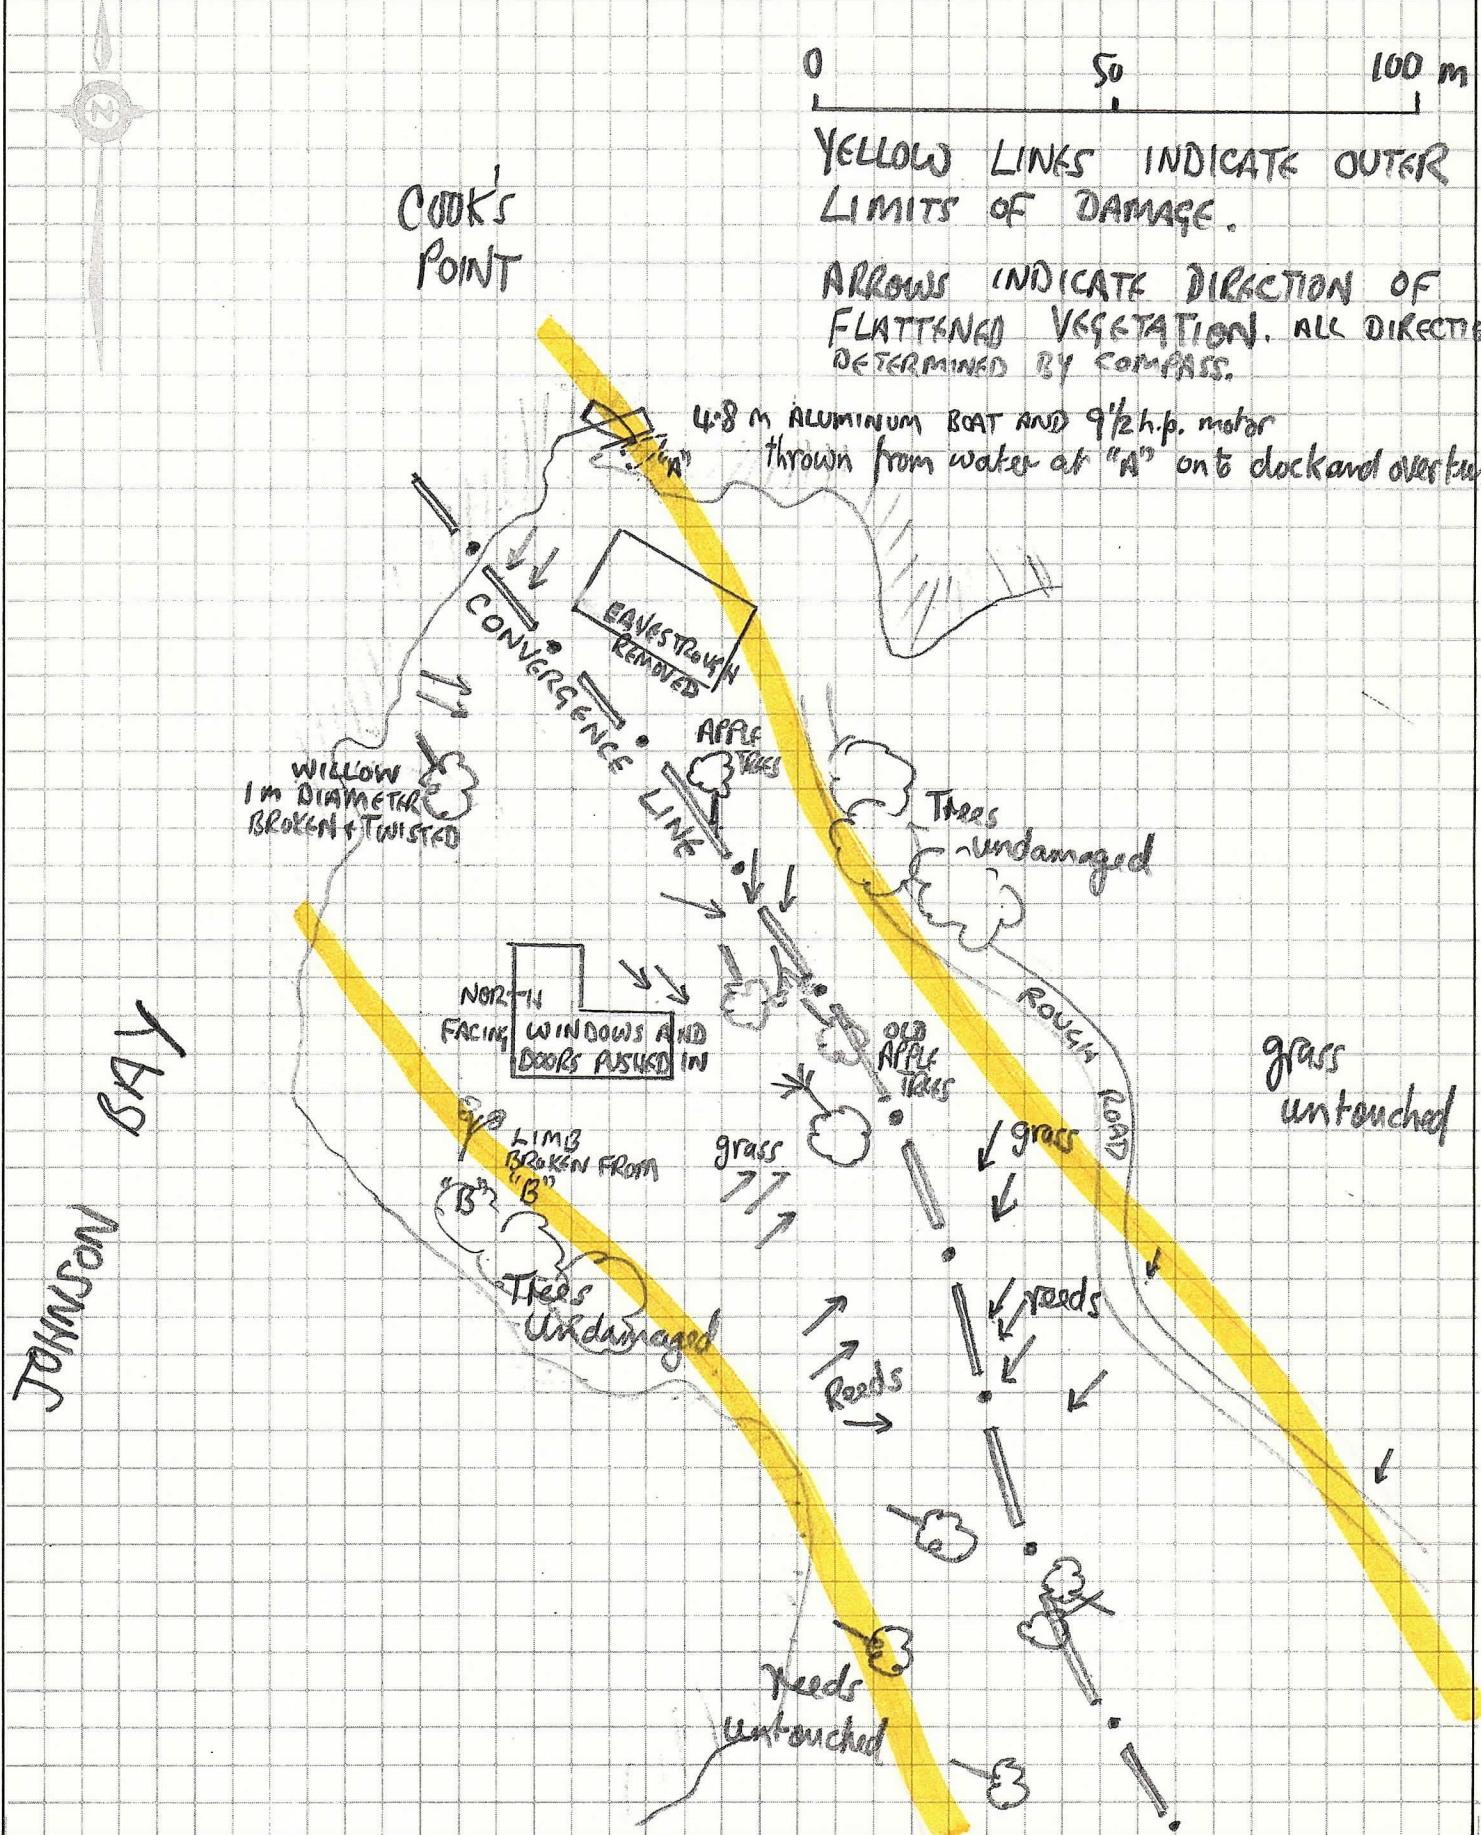 N
0 50 100 m
YELLOW LINES INDICATE OUTER
LIMITS OF DAMAGE.
COOK'S
POINT
ARROWS INDICATE DIRECTION OF
FLATTENED VEGETATION. ALL
DETERMINED BY COMPASS.
4.8 m ALUMINUM BOAT AND 9 1/2 h.p. motor
thrown from water at "A" onto dock and
"A"
EAVESTROUGH
REMOVED
CONVERGENCE
LINE
APPLE
TREES
WILLOW
1 m DIAMETER
BROKEN + TWISTED
Trees
undamaged
NORTH
FACING WINDOWS AND
DOORS PUSHED IN
OLD
APPLE
TREES
ROUGH ROAD
grass
untouched
JOHNSON BAY
LIMB
BROKEN FROM
"B"
"B"
grass
grass
Trees
Undamaged
reeds
Reeds
Reeds
untouched